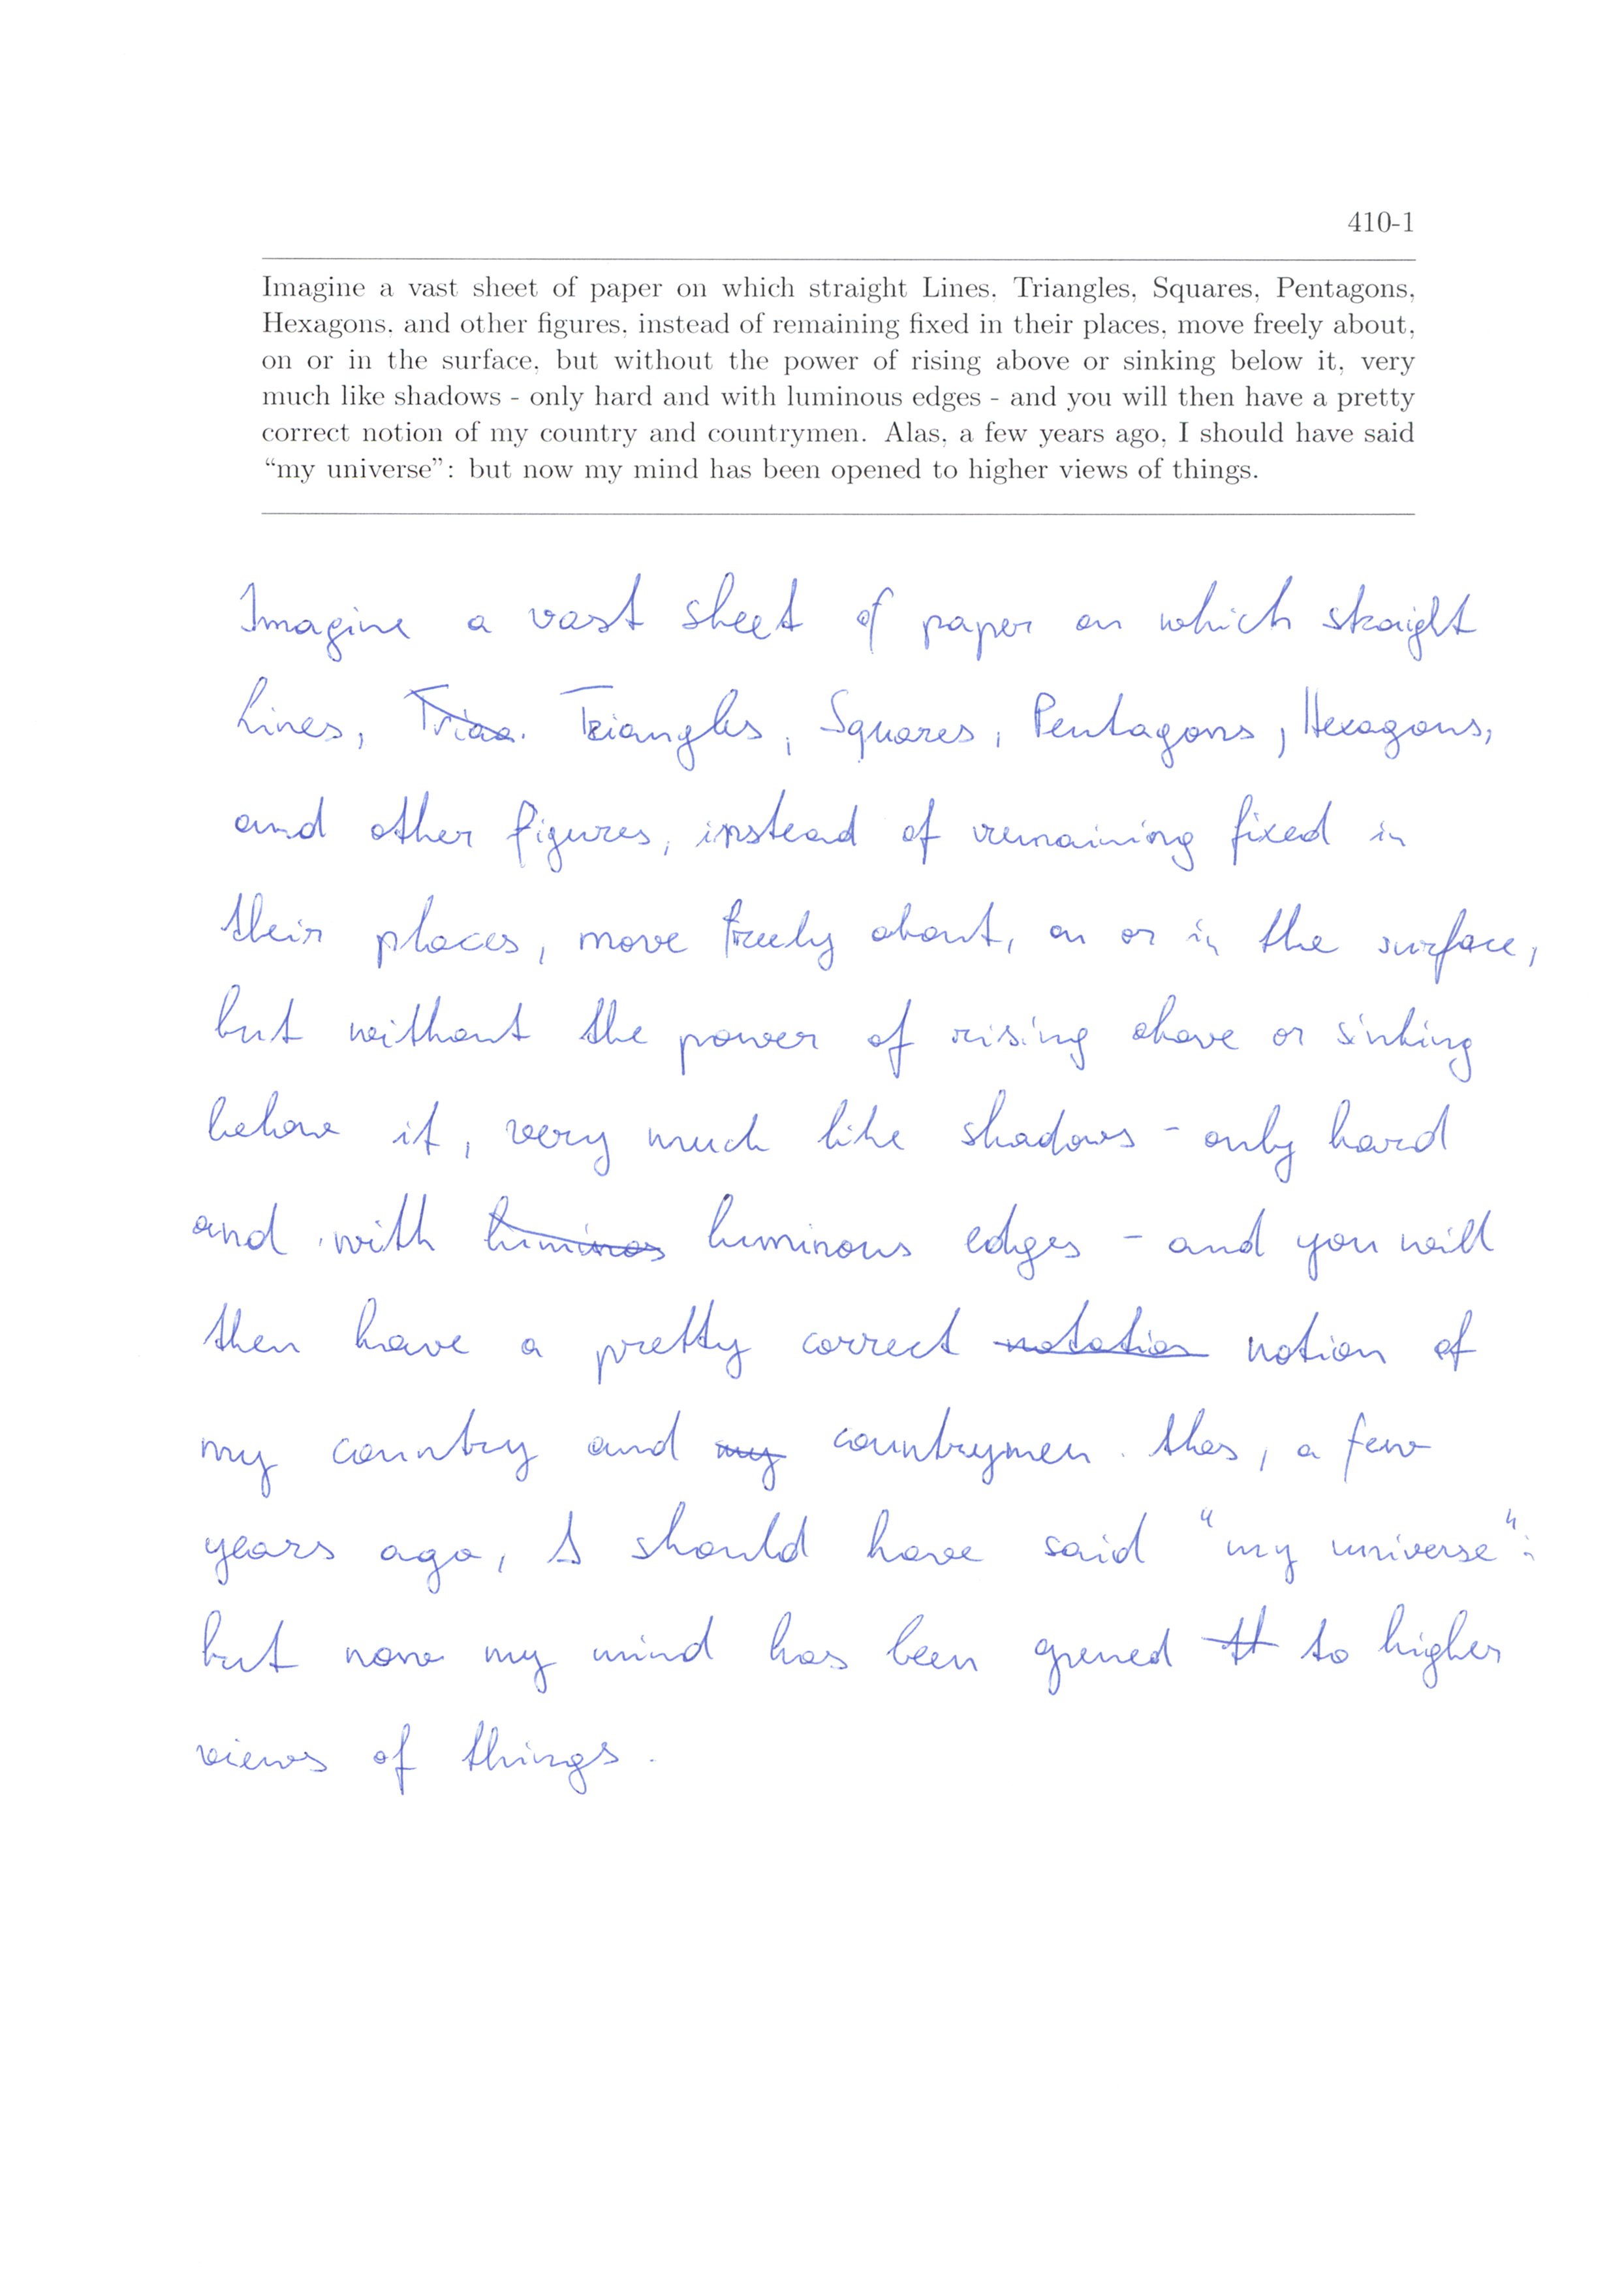 410-1
Imagine a vast sheet of paper on which straight Lines, Triangles, Squares, Pentagons,
Hexagons, and other figures, instead of remaining fixed in their places, move freely about,
on or in the surface, but without the power of rising above or sinking below it, very
much like shadows - only hard and with luminous edges - and you will then have a pretty
correct notion of my country and countrymen. Alas, a few years ago, I should have said
“my universe”: but now my mind has been opened to higher views of things.
Imagine a vast sheet of paper on which straight
Lines, Triaa. Triangles, Squares, Pentagons, Hexagons,
and other figures, instead of remaining fixed in
their places, move freely about, on or in the surface,
but without the power of rising above or sinking
below it, very much like shadows - only hard
and with luminos luminous edges - and you will
then have a pretty correct notation notion of
my country and my countrymen. Alas, a few
years ago, I should have said "my universe":
but now my mind has been opened tt to higher
views of things.